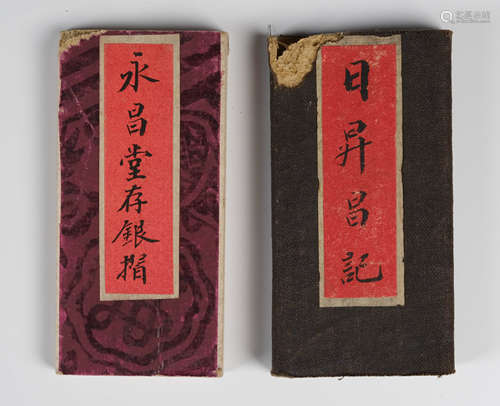 永昌堂存銀摺
日昇昌記